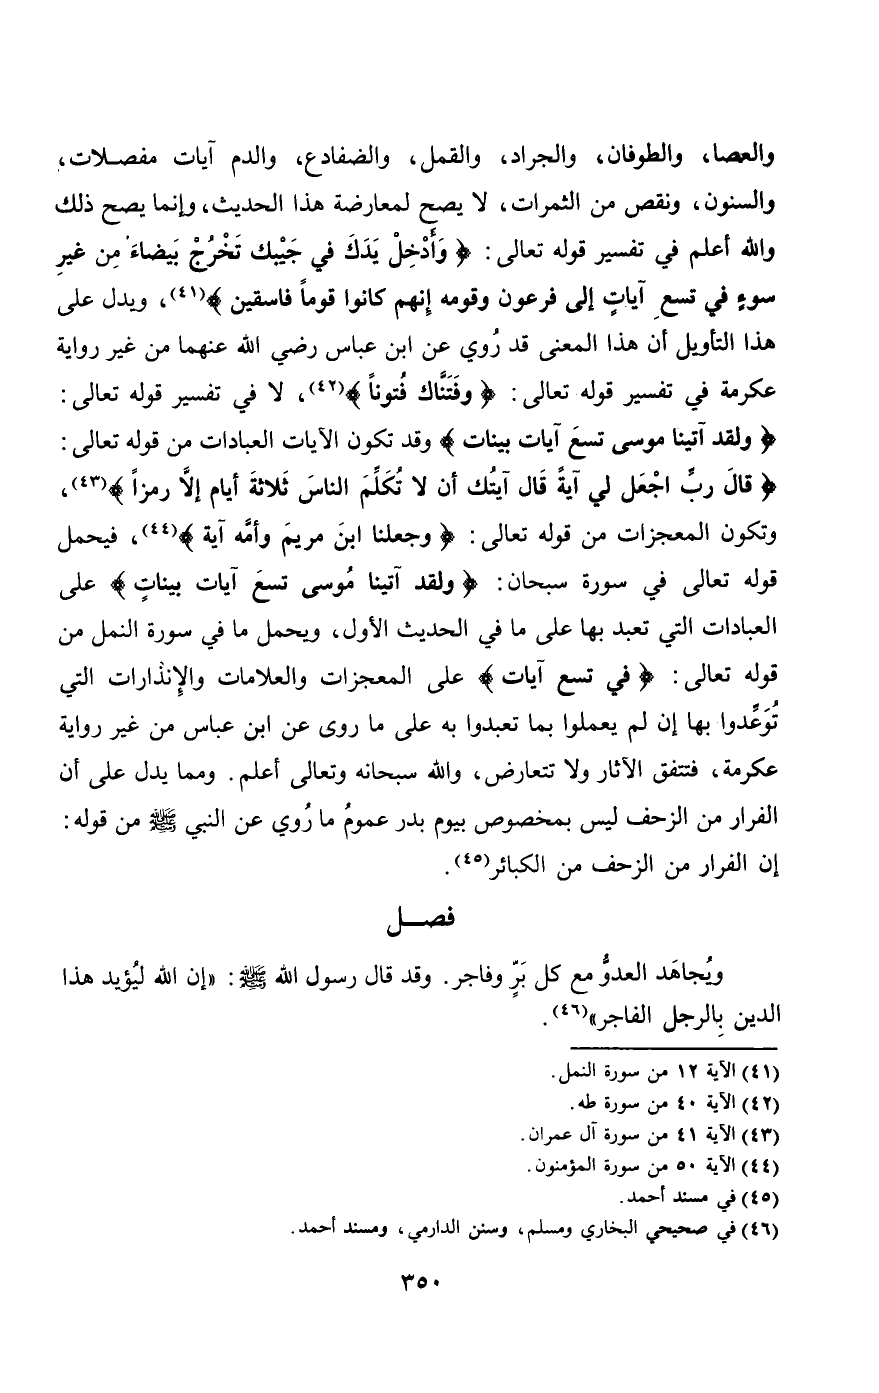 والعصا، والطوفان، والجراد، والقمل، والضفادع، والدم آيات مفصـلات،
والسنون، ونقص من الثمرات، لا يصح لمعارضة هذا الحديث، وإنما يصح ذلك
والله أعلم في تفسير قوله تعالى: ﴿ وَأَدْخِلْ يَدَكَ في جَيْبك تَخْرُجْ بَيضاءَ مِن غيرِ
سوءٍ في تسعِ آياتٍ إلى فرعون وقومه إنهم كانوا قوماً فاسقين ﴾(٤١)، ويدل على
هذا التأويل أن هذا المعنى قد رُوي عن ابن عباس رضي الله عنهما من غير رواية
عكرمة في تفسير قوله تعالى: ﴿ وفَتَنَّاك فُتوناً ﴾(٤٢)، لا في تفسير قوله تعالى:
﴿ ولقد آتينا موسى تسعَ آيات بينات ﴾ وقد تكون الآيات العبادات من قوله تعالى:
﴿ قالَ ربِّ اجْعَل لي آيةً قَال آيتُك أن لا تُكَلِّمَ الناسَ ثَلاثةَ أيام إلاَّ رمزاً ﴾(٤٣)،
وتكون المعجزات من قوله تعالى: ﴿ وجعلنا ابنَ مريمَ وأمَّه آية ﴾(٤٤)، فيحمل
قوله تعالى في سورة سبحان: ﴿ ولقد آتينا مُوسى تسعَ آيات بيناتٍ ﴾ على
العبادات التي تعبد بها على ما في الحديث الأول، ويحمل ما في سورة النمل من
قوله تعالى: ﴿ في تسع آيات ﴾ على المعجزات والعلامات والإنذارات التي
تُوَعِّدوا بها إن لم يعملوا بما تعبدوا به على ما روى عن ابن عباس من غير رواية
عكرمة، فتتفق الآثار ولا تتعارض، والله سبحانه وتعالى أعلم. ومما يدل على أن
الفرار من الزحف ليس بمخصوص بيوم بدر عمومُ ما رُوي عن النبي ﷺ من قوله:
إن الفرار من الزحف من الكبائر(٤٥).
فصـــل
ويُجاهَد العدوُّ مع كل بَرٍّ وفاجر. وقد قال رسول الله ﷺ: «إن الله ليُؤيد هذا
الدين بِالرجل الفاجر»(٤٦).
(٤١) الآية ١٢ من سورة النمل.
(٤٢) الآية ٤٠ من سورة طه.
(٤٣) الآية ٤١ من سورة آل عمران.
(٤٤) الآية ٥٠ من سورة المؤمنون.
(٤٥) في مسند أحمد.
(٤٦) في صحيحي البخاري ومسلم، وسنن الدارمي، ومسند أحمد.
٣٥٠